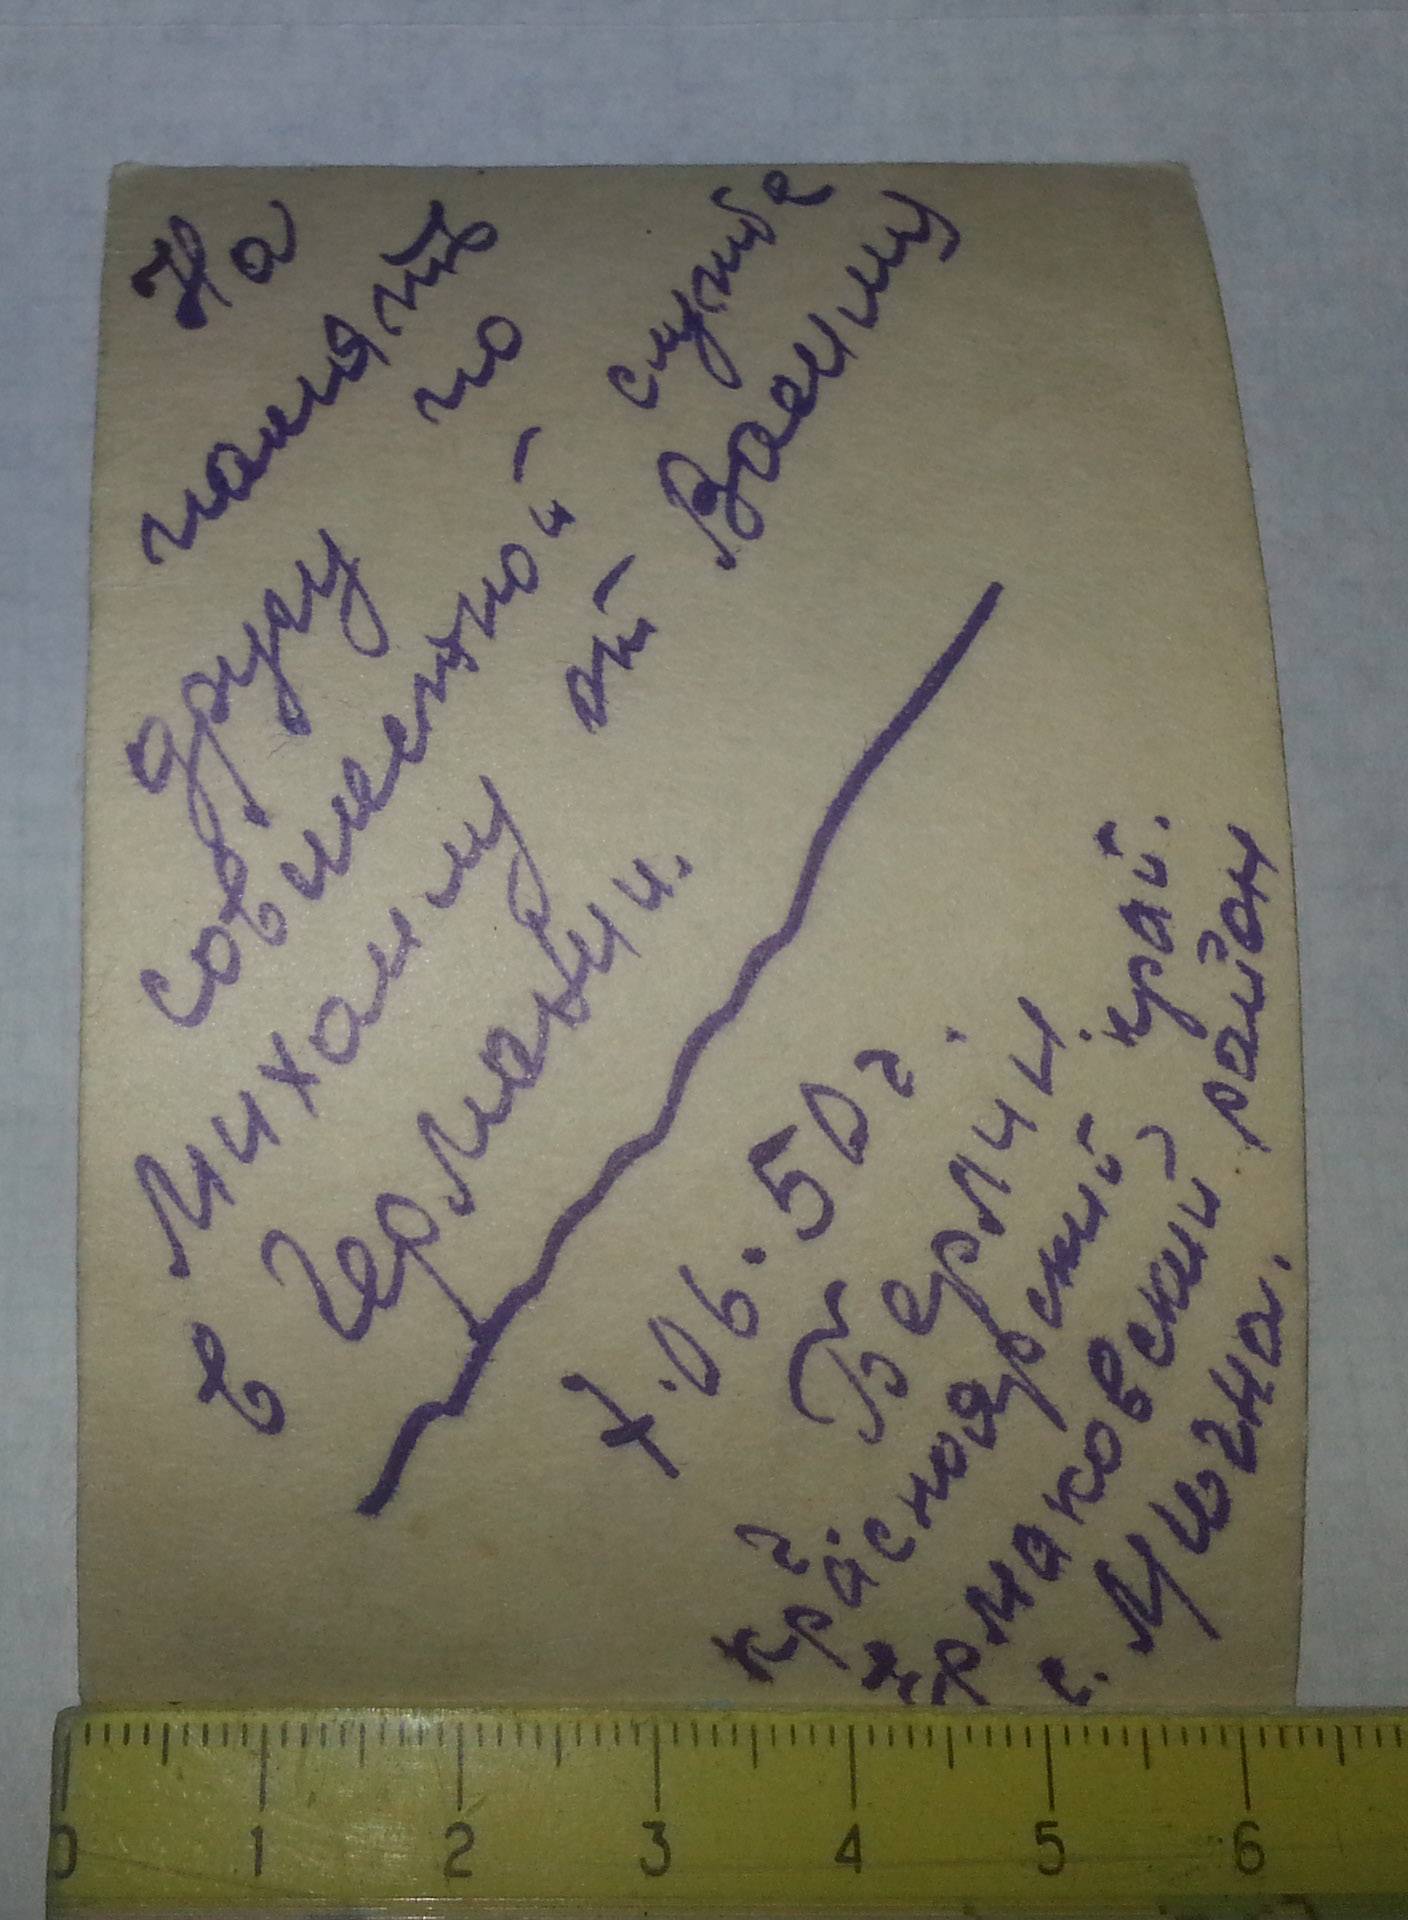 На память
другу по
совместной службе
Михаилу от
в Германии.
7.06.50 г.
г Берлин.
Красноярский край.
Ермаковский район
с. Мигна.
0 1 2 3 4 5 6